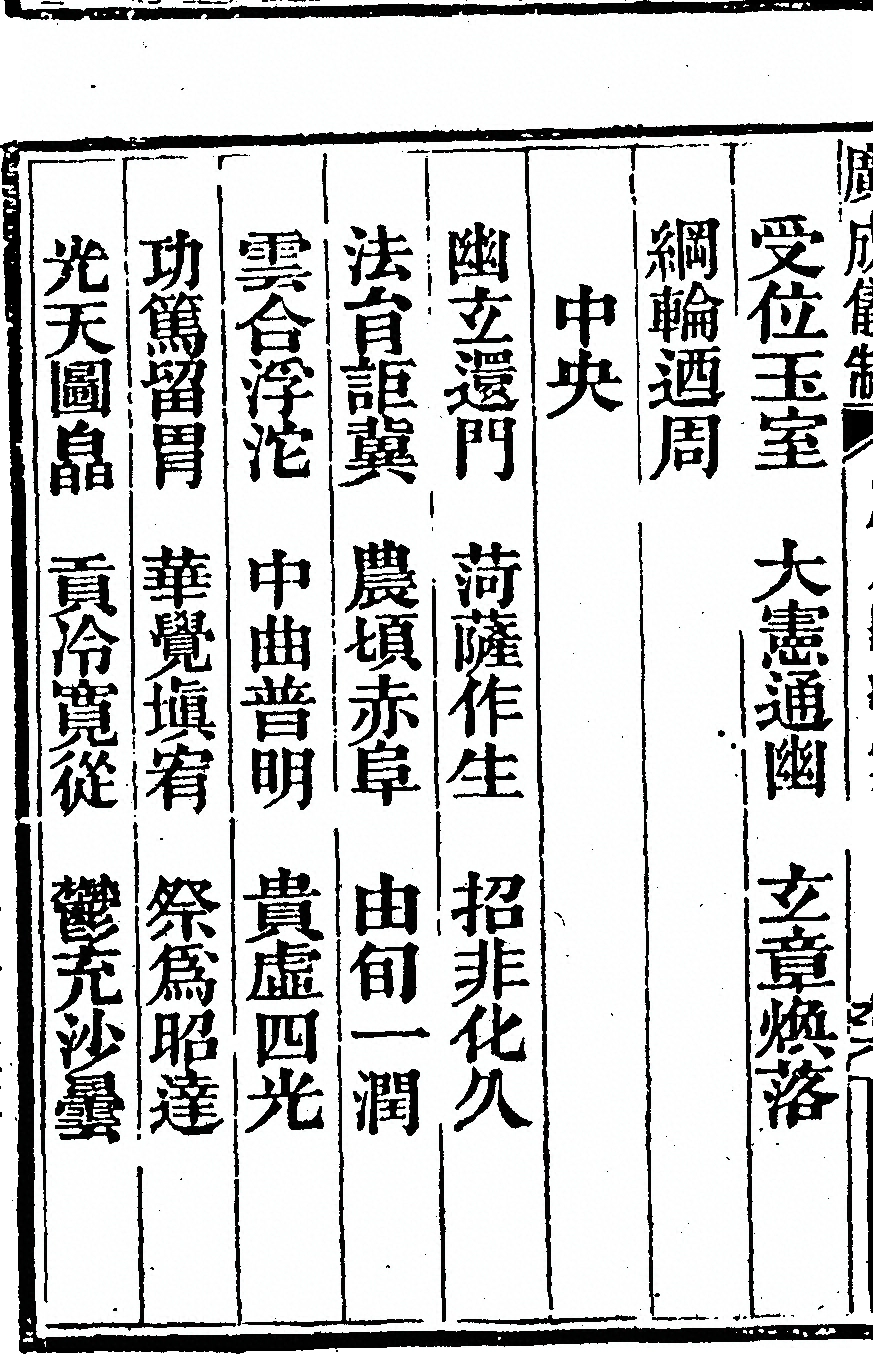 廣成儀制
受位玉室　大憲通幽　立章煥落
綱輪迺周
中央
幽立還門　菏薩作生　招非化久
法育詎冀　農頃赤阜　由旬一潤
雲合浮沱　中曲普明　貴虛四光
功篤留胃　華覺塡宥　祭為昭達
光天圖皛　貢冷寬從　鬱充沙曇